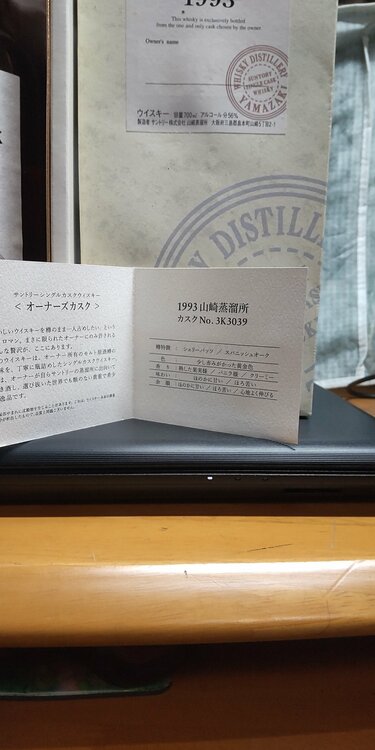 1993
This whisky is exclusively bottled
from the one and only cask chosen by the owner.
Owner's name
WHISKY DISTILLERY
SUNTORY
SINGLE CASK
WHISKY
YAMAZAKI
ウイスキー 容量700ml アルコール分56%
製造者 サントリー株式会社 山崎蒸溜所 大阪府三島郡島本町山崎5丁目2-1
Y DISTILL
サントリーシングルカスクウイスキー
<オーナーズカスク>
らしいウイスキーを樽のまま一人占めしたい、という
ロマン。まさに限られたオーナーにのみ許される
な贅沢が、ここにあります。
のウイスキーは、オーナー所有のモルト原酒樽の
味を、丁寧に瓶詰めしたシングルカスクウイスキー
は、オーナー自らサントリーの蒸溜所に出向いて
き酒し、選び抜いた世界でも類のない貴重で希少
逸品です。
1993山崎蒸溜所
カスクNo. 3K3039
樽特徴 : シェリーバット / スパニッシュオーク
色 : 少し赤みがかった黄金色
香り : 熟した果実様 / バニラ様 / クリーミー
味わい : ほのかに甘い / ほろ苦い
余韻 : ほのかに甘い / ほろ苦い / 心地よく伸びる